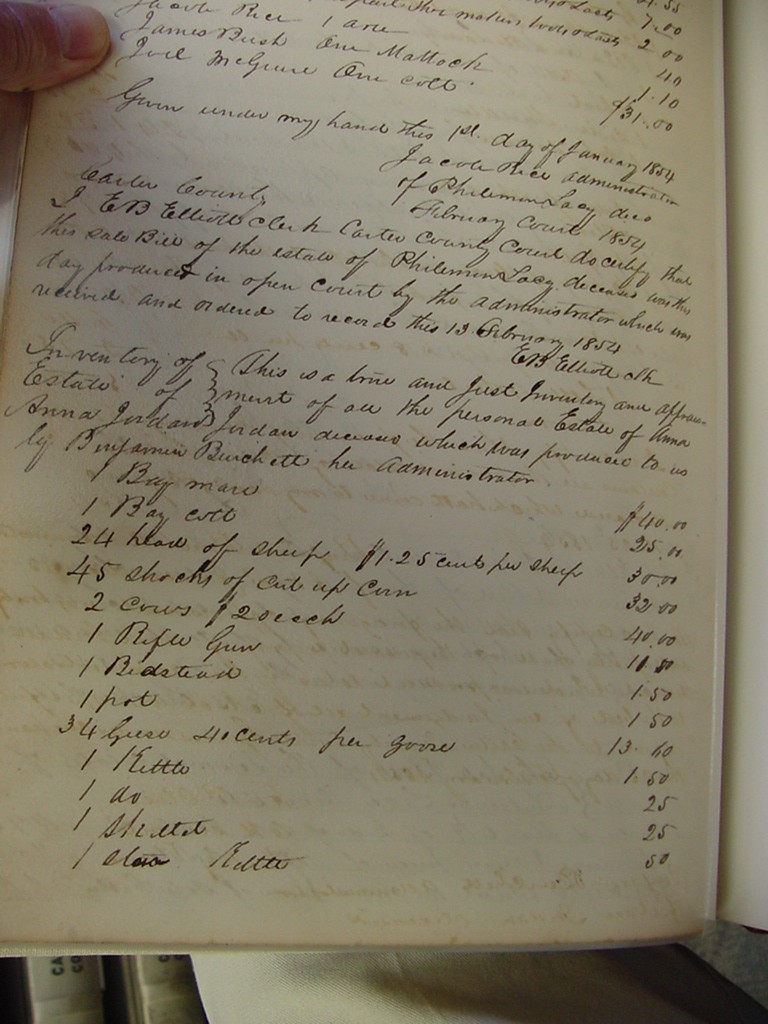 Jacob Rice 1 axe 2 00
James Bush One Mattock 40
Joel McGuire One colt 1.10
$31.00
Given under my hand this 1st. day of January 1854
Jacob Rice administrator
of Philemon Lacy decd
Carter County February Court 1854
I EB Elliott clerk Carter County Court do certify that
this Sale Bill of the estate of Philemon Lacy deceased was this
day produced in open court by the administrator which was
received and ordered to record this 13 February 1854
EB Elliott clk
Inventory of This is a true and Just Inventory and apprais-
Estate of ment of all the personal Estate of Anna
Anna Jordan Jordan deceased which was produced to us
by Benjamin Burchett her Administrator
1 Bay mare $40.00
1 Bay colt 25.00
24 head of sheep $1.25 cents per sheep 30.00
45 shocks of cut up corn 32.00
2 cows $20 each 40.00
1 Rifle Gun 11.50
1 Bedstead 1.50
1 pot 1 50
34 Geese 40 cents per goose 13.60
1 Kettle 1.50
1 do 25
1 Skillet 25
1 Kettle 50
CA
CO